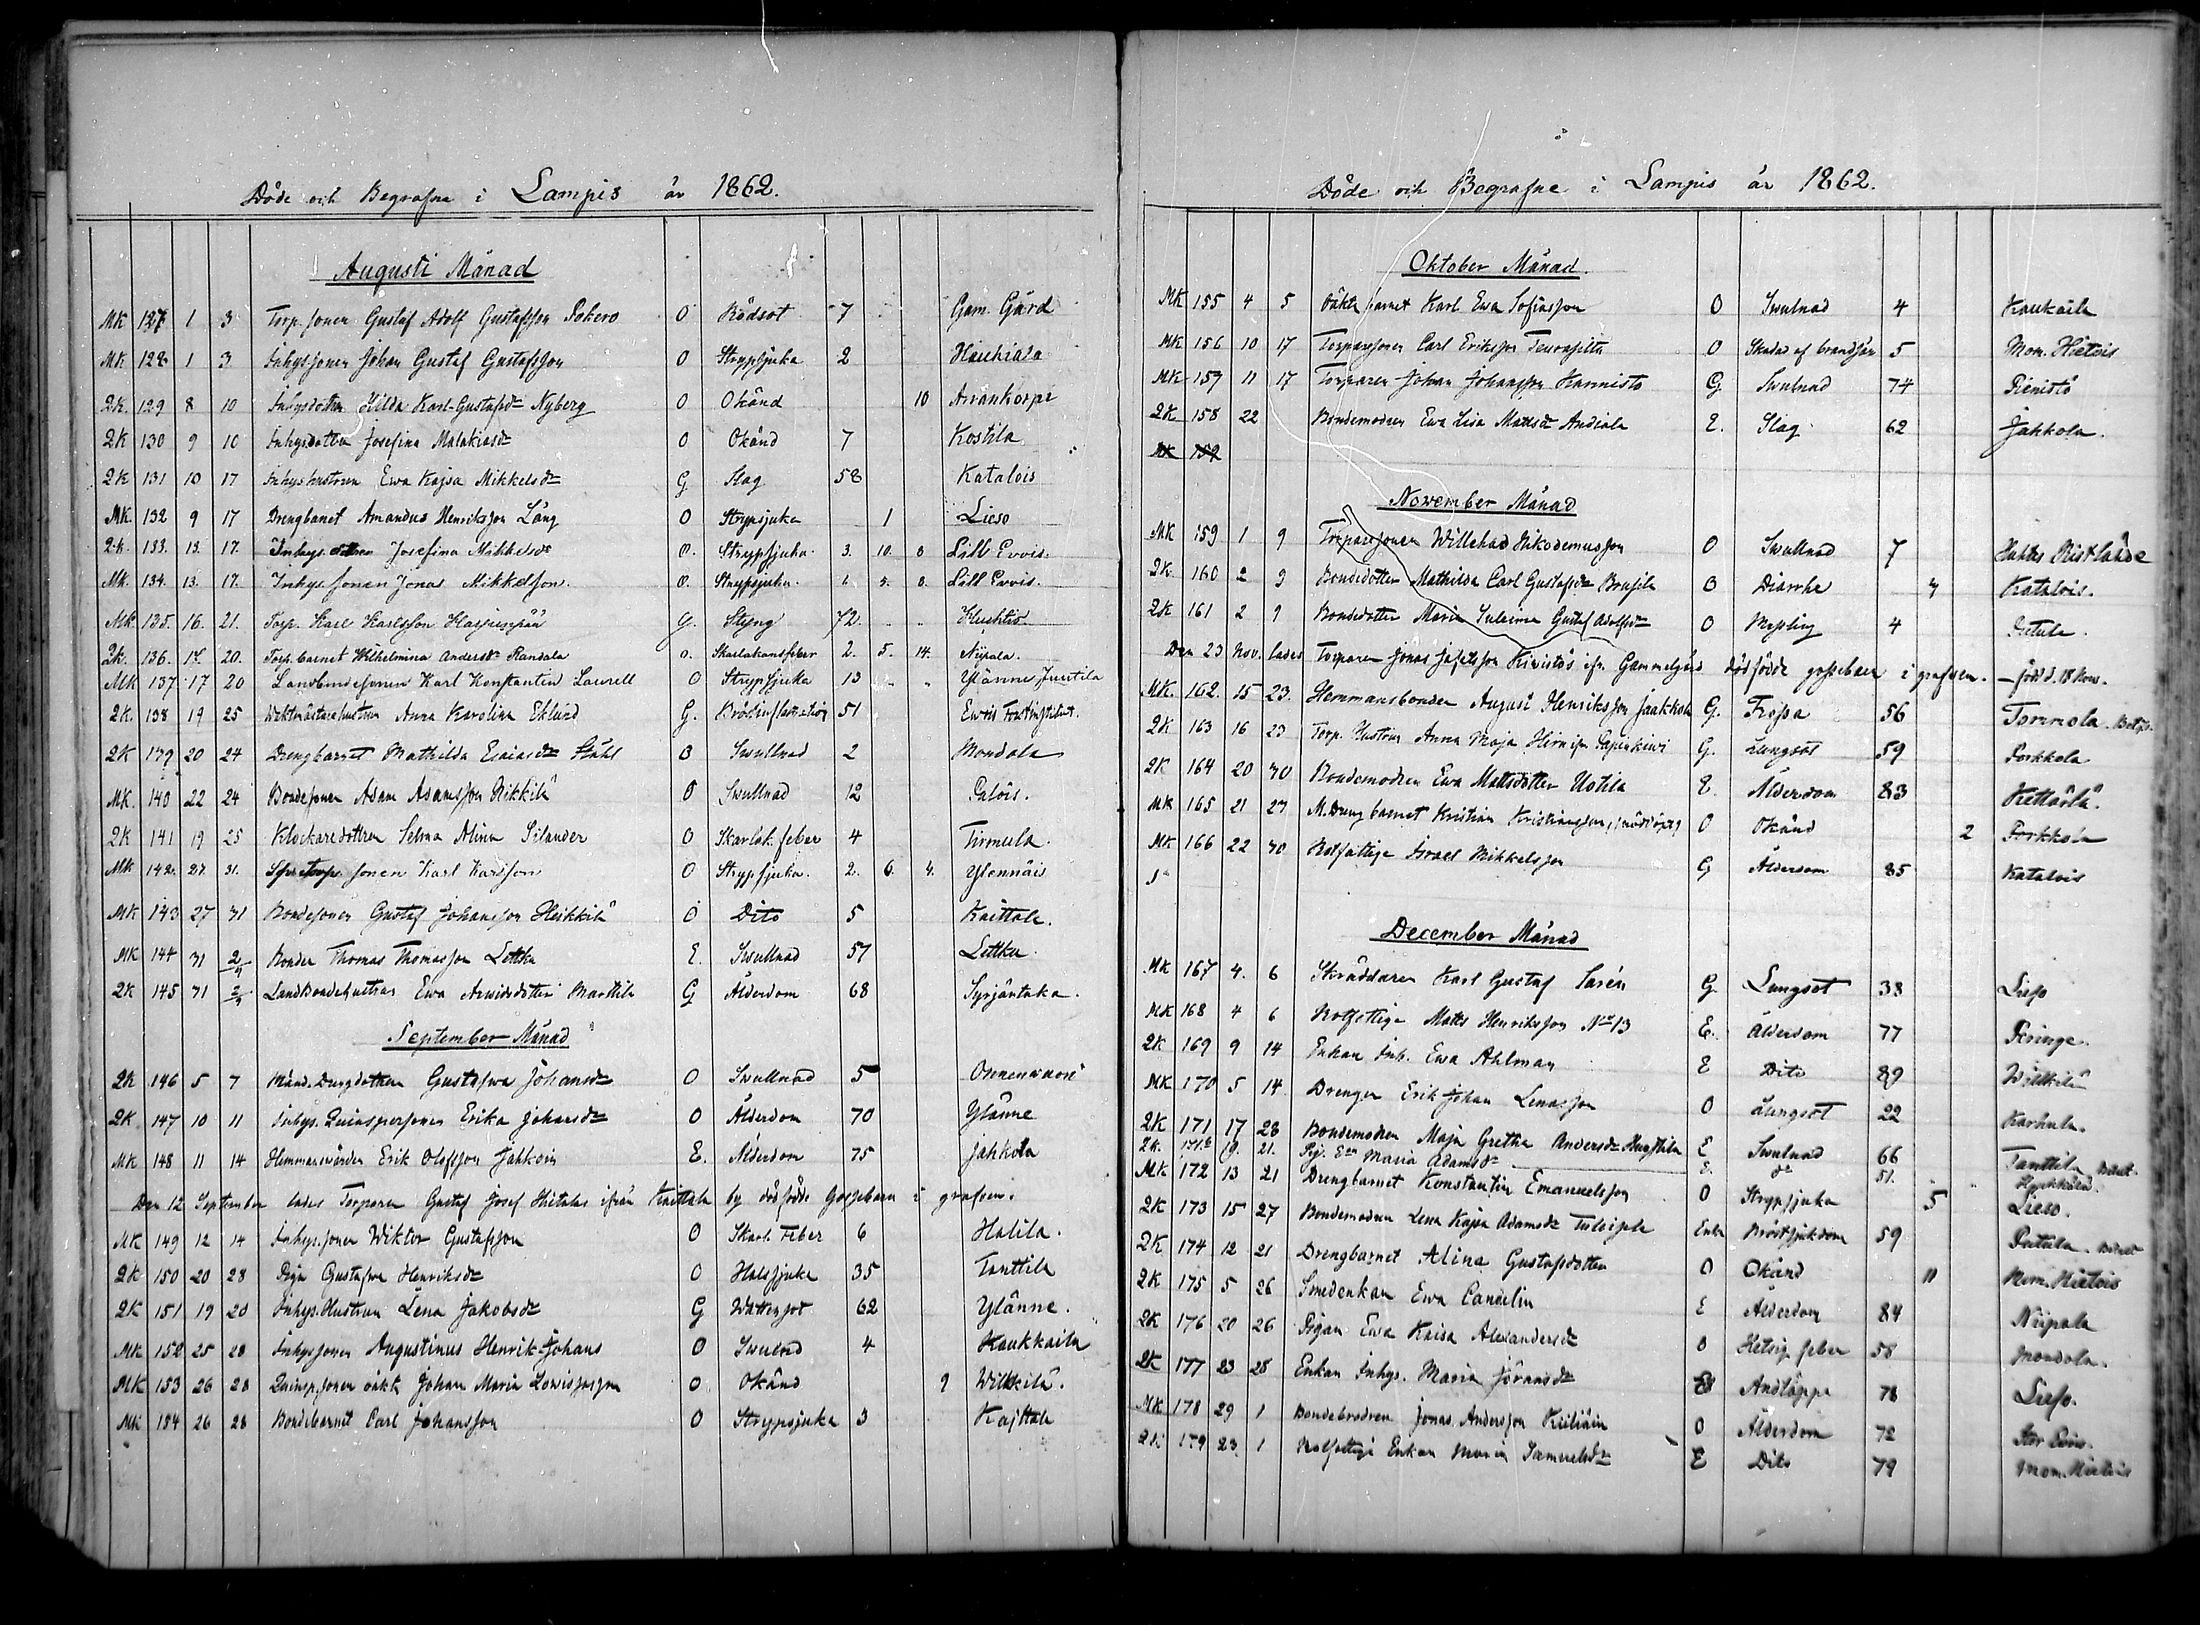 Döde och Begrafne i Lampis år 1862.
Augusti Månad
MK 127 1 3 Torp.sonen Gustaf Adolf Gustafsson Sokero O Rödsot 7 Gam. Gård
MK 128 1 3 Inhyssonen Johan Gustaf Gustafsson O Strypsjuka 2 Hauhiala
2K. 129 8 10 Inhysdottren Hilda Karl-Gustafsdr Nyberg O Okänd 10 Arrankorpi
2K 130 9 10 Inhysdottren Josefina Malakiasdr O Okänd 7 Kostila
2K 131 10 17 Inhyshustrun Ewa Kajsa Mikkelsdr G Slag 58 Katalois
MK. 132 9 17 Drengbarnet Amandus Henriksson Lång O Strypsjuka 1 Lieso
2K. 133. 13. 17. Inhys. dottren Josefina Mikkelsdr O. Strypsjuka. 3. 10. 0 Lill Evois.
Mk. 134. 13. 17. Inhys sonen Jonas Mikkelsson. O. Strypsjuka. 1. 0. Lill Evois.
Mk. 135. 16. 21. Torp. Karl Karlsson G. Styng 72.
2K. 136. 17. 20. Torp. barnet Wilhelmina Andersdr Randala O. Skarlakansfeber 2. 5. 14. Nipala.
MK 137 17 20 Landbondesonen Karl Konstantin Laurell O Strypsjuka 13 Ylänne Juutila
2K. 138 19 25 Anna Karolina Eklund G. 51 Evois Forstinstitut.
2K 139 20 24 Drengbarnet Mathilda Esaiasdr Ståhl O Swullnad 2 Mondala
MK. 140 22 24 Bondesonen Adam Adamsson Heikkilä O Swullnad 12
2K 141 19 25 Klockaredottren Selma Alina Silander O Skarlak. feber 4 Tirmula.
MK 142. 27. 31. sonen Karl Karlsson O Strypsjuka. 2. 6. 4. Ylennäis
MK 143 27 31 Bondesonen Gustaf Johansson Heikkilä O Dito 5 Kaittala.
MK 144 31 2/9 Bonden Thomas Thomasson Lettku E. Swullnad 57 Lettku.
2K 145 31 2/9 Landbondehustrun Ewa Arwidsdotter Marttila G Ålderdom 68 Syrjäntaka.
September Månad
2K 146 5 7 Drengdottren Gustafwa Johansdr O Swullnad 5
2K. 147 10 11 Inhys. Quinspersonen Erika Johansdr O Ålderdom 70 Ylänne
MK 148 11 14 Hemmanswärden Erik Olofsson Jahkola E. Ålderdom 75 Jahkola
Den 12 September lades Torparen Gustaf Josef Hietalas ifrån Kaittala by dödfödde gossebarn i grafven.
MK 149 12 14 Inhys.sonen Wiktor Gustafsson O Skarl. Feber 6 Halila.
2K 150 20 28 Pigan Gustafwa Henriksdr O Halssjuka 35 Tanttila
2K 151 19 20 Inhys. Hustrun Lena Jakobsdr G Wattusot 62 Ylänne.
MK 152 25 28 Inhyssonen Augustinus Henrik Johans O Swulnd 4 Kaukkaila
MK 153 26 28 Quinsp.sonen oäkt Johan Maria Lowisasson O Okänd 9 Wilkkilä.
MK 154 26 28 Bondebarnet Carl Johansson O Strypsjuka 3 Kajttala
Döde och Begrafne i Lampis år 1862.
Oktober Månad.
MK 155 4 5 Oäkta barnet Karl Ewa Sofiasson O Swulnad 4 Kaukaila
MK 156 10 17 Torparesonen Carl Eriksson O Skadad af 5 Mom. Hietois
MK 157 11 17 Torparen Johan Johansson Kannisto G. Swulnad 74
2K 158 22 Bondemodren Ewa Lisa Mattsdr Andiala E. Slag 62 Jahkola.
MK 159
November Månad
MK 159 1 9 Torparesonen Willehad Nikodemusson O Swullnad 7
2K. 160 2 9 Bondedottren Mathilda Carl Gustafsdr Brusila O Diarrhe Katalois.
2K 161 2 9 Bondedotter Maria Gustaf Adolfsdr O Mässling 4
Den 23 Nov. lades Torparen Jonas Kiwistös ifr. Gammelgård dödfödde gossebarn i grafven. - född d. 18 Nov.
MK. 162. 15 23. Hemmansbonden August Henriksson Jaakkola G. Frossa 56 Tormola
2K 163 16 23 Torp. Hustrun Anna Maja G. Lungsot 59 Porkkola
2K 164 20 30 Bondemodren Ewa Mattsdotter Uotila E. Ålderdom 83
MK 165 21 23 M. Dreng barnet Kristian Kristiansson (nöddöpt) O Okänd 2 Porkkola
MK 166 22 30 Rotfattige Israel Mikkelsson G Ålderdom 85 Katalois
December Månad
MK 167 4. 6 Skräddaren Karl Gustaf Sarén G. Lungsot 38 Lieso
MK 168 4 6 Rotfattige Matts Henriksson No 13 E. Ålderdom 77 Pitkäniemi
2K 169 9 14 Enkan Inh. Ewa Ahlman E Dito 89 Wilkkilä
MK 170 5 14 Drengen Erik Johan Lenasson O Lungsot 22 Karhula.
2K 171 17 26 Bondemodren Maja Gretha Andersdr E Swulnad 66 Tanttila
2K. 171b 19. 21. Pig. Maria Adamsdr E. dr 51.
MK 172 13 21 Drengbarnet Konstantin Emanuelsson O Strypsjuka 5 Lieso.
2K 173 15 27 Bondemodren Lena Kajsa Adamsdr Enka Bröstsjukdom 59
2K 174 12 21 Drengbarnet Alina Gustafsdotter O Okänd 11 Mom. Hietois
2K 175 5 26 Smedenkan Ewa Candelin E Ålderdom 84 Nipala
2K 176 20 26 Pigan Ewa Kaisa Alexandersdr O Hetsig feber 58 Mondola.
2K 177 23 28 Enkan Inhys. Maria Jöransdr E Andtäppa 78 Lieso.
MK 178 29 1 Bondebrodren Jonas Andersson O Ålderdom 72 Stor Evois.
2K 179 23 1 Rotfattige Enkan Maria Samuelsdr E Dito 79 Mom. Hietois